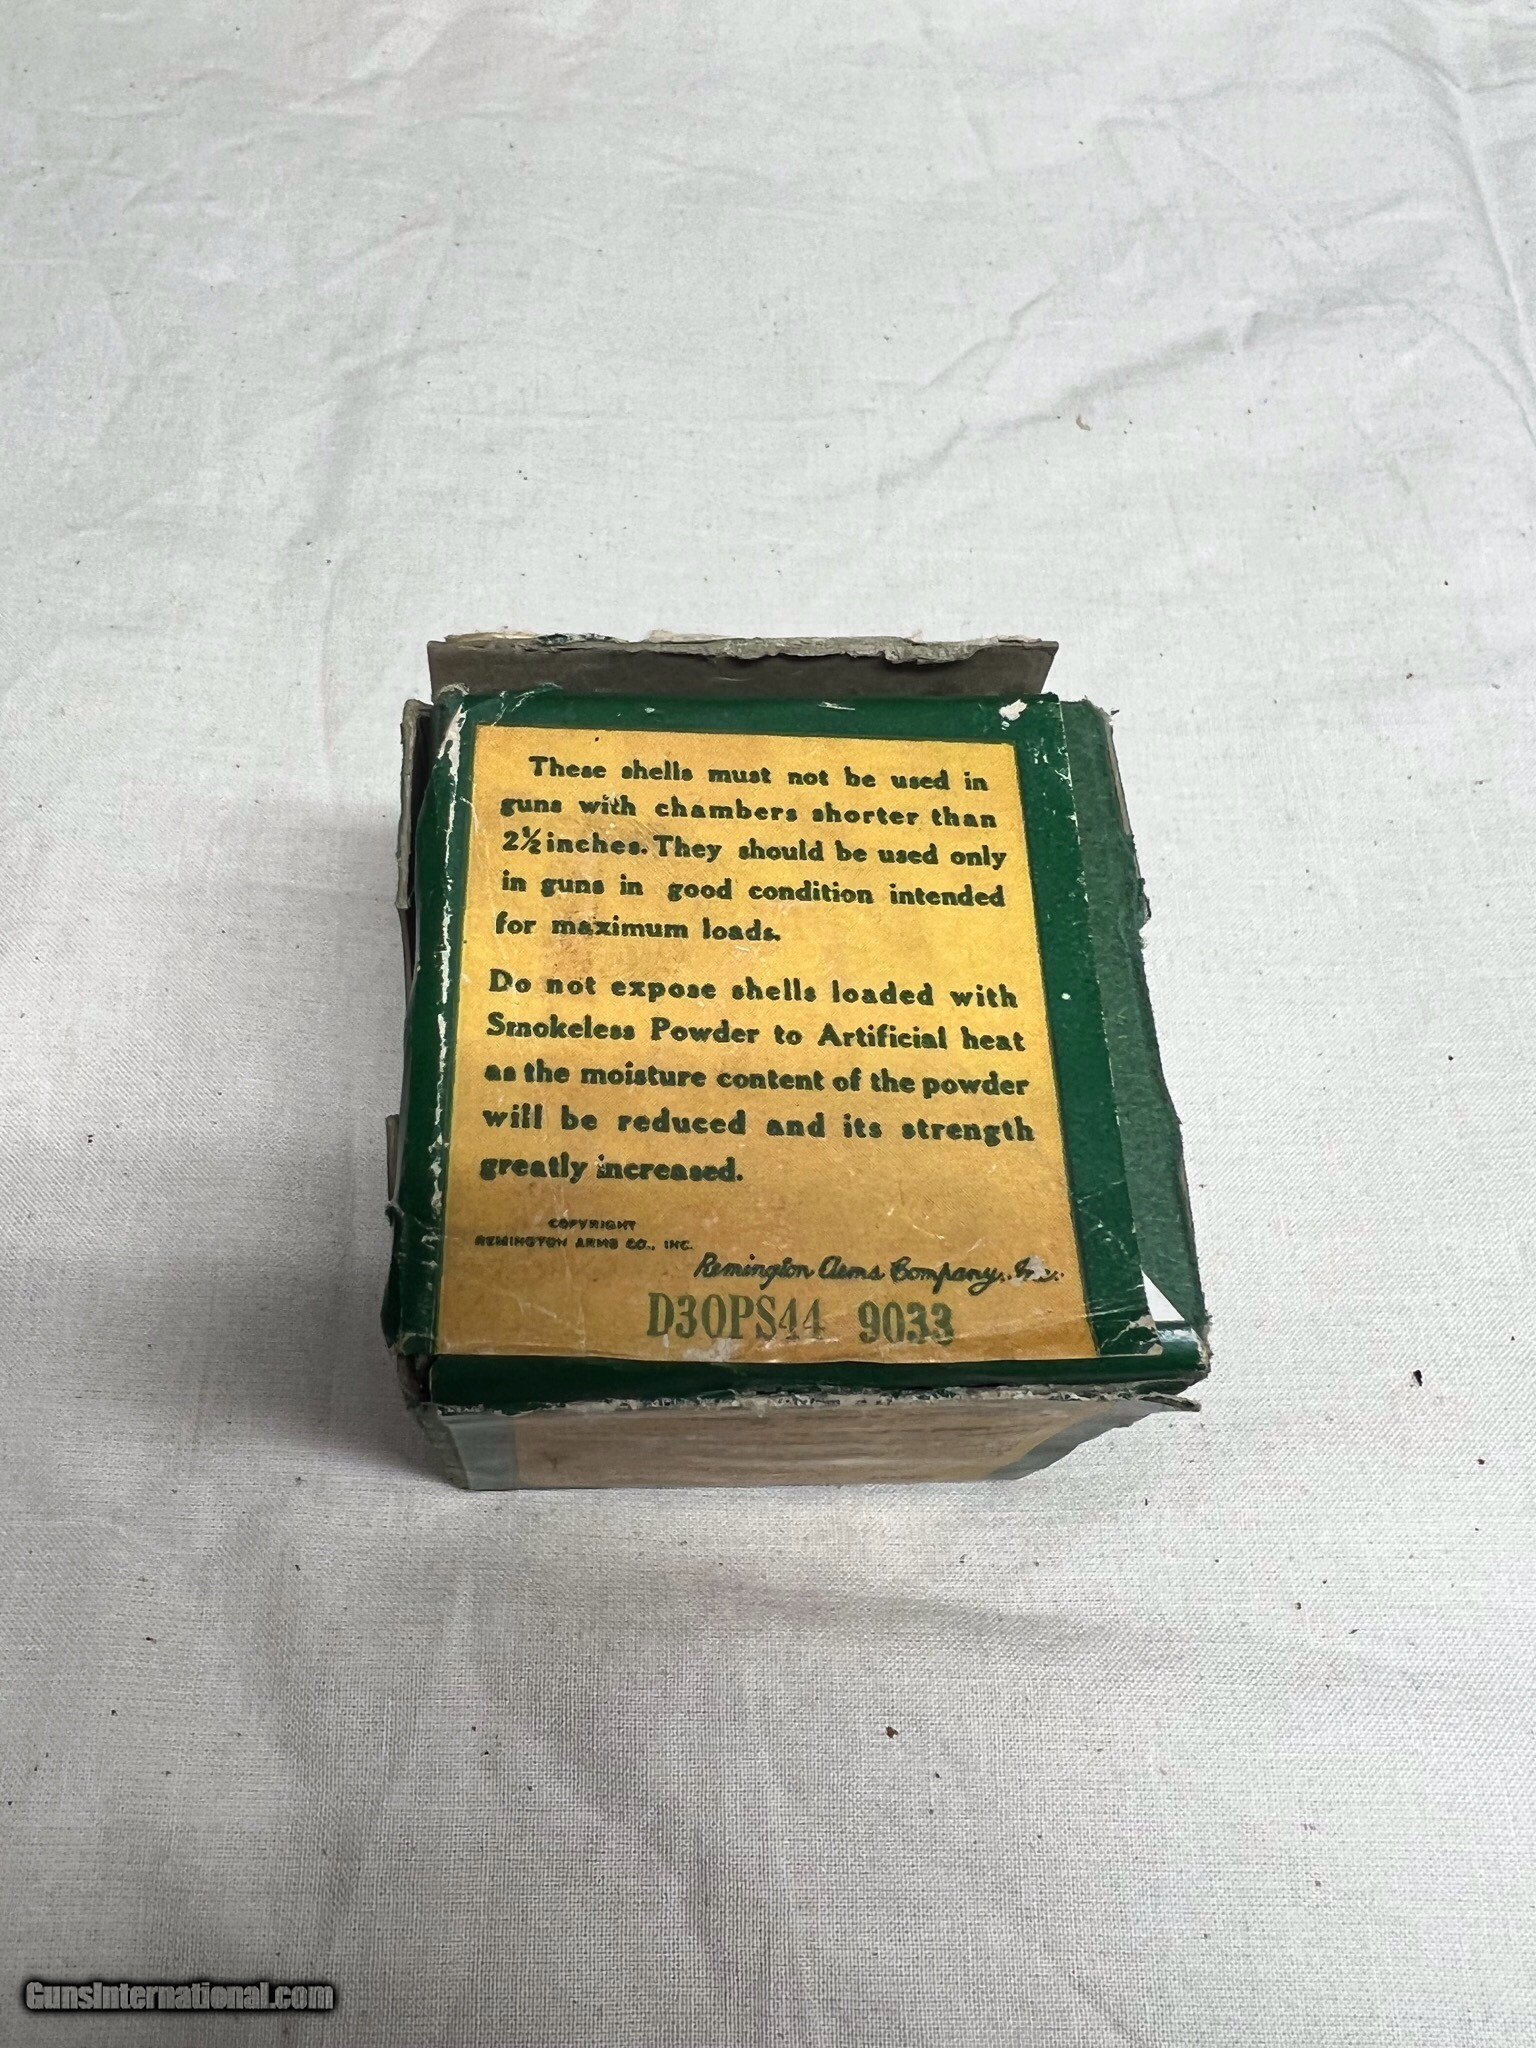 These shells must not be used in
guns with chambers shorter than
2½ inches. They should be used only
in guns in good condition intended
for maximum loads.
Do not expose shells loaded with
Smokeless Powder to Artificial heat
as the moisture content of the powder
will be reduced and its strength
greatly increased.
COPYRIGHT
REMINGTON ARMS CO., INC.
Remington Arms Company, Inc.
D30PS44 9033
GunsInternational.com